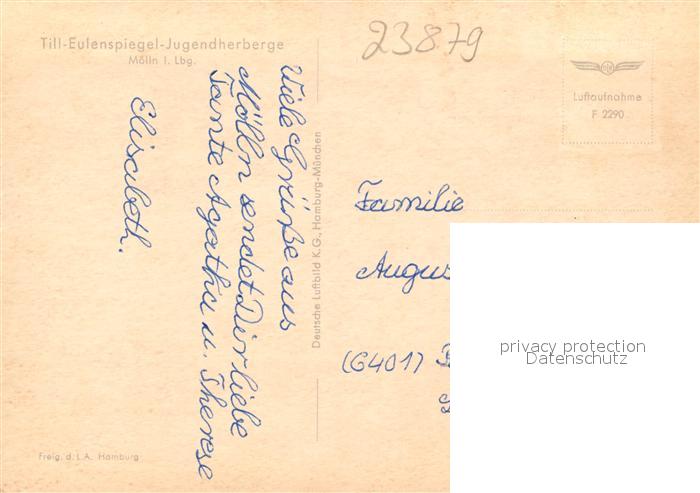 Till-Eulenspiegel-Jugendherberge
Mölln i. Lbg.
23879
Luftaufnahme
F 2290
Viele Grüße aus
Mölln sendet Dir liebe
Tante Agatha u. Therese
Elisabeth.
Deutsche Luftbild K.G., Hamburg-München
Familie
Augus
(6401)
privacy protection
Datenschutz
Freig. d. L.A. Hamburg